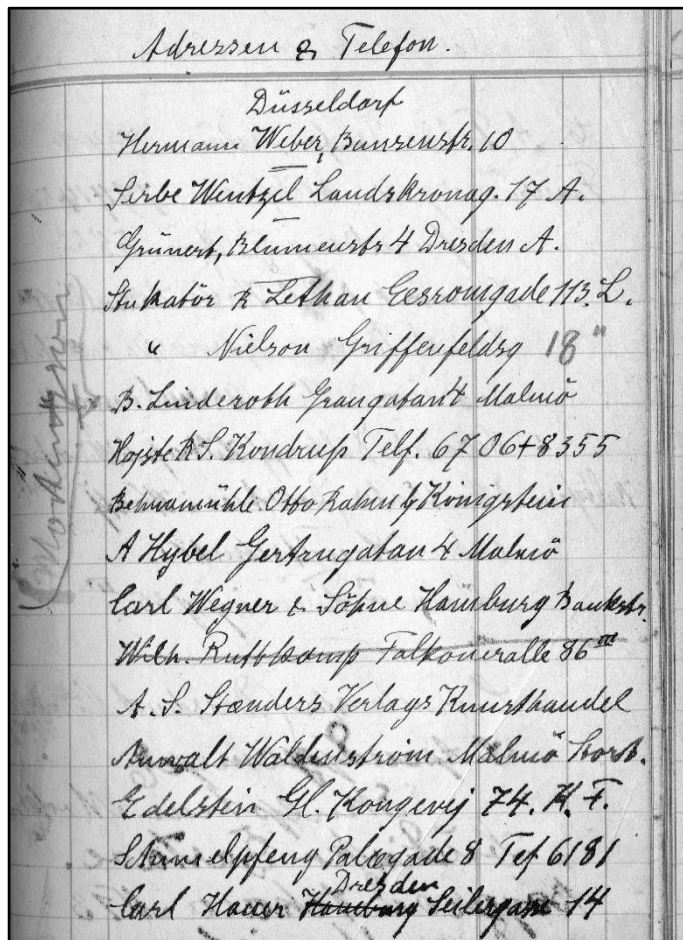 Adressen & Telefon.
Düsseldorf
Hermann Weber, Bunsenstr. 10
Sirbe Wentzel Landskronag. 17 A.
Grünert, Blumenstr 4 Dresden A.
Stukatör R Lethan Esromgade 113. L.
" Nielson Griffenfeldsg 18 "
B. Linderoth Grangatan 4 Malmö
R S. Kondrup Telf. 6706+8355
Otto Rahm b/ Königstein
A Hybel Gertrugatan 4 Malmö
Carl Wegner & Söhne Hamburg Bankstr.
Wilh. Ruttkamp Falkoneralle 86 III
A. S. Stænders Verlags Kunsthandel
Anwalt Waldenström Malmö Stort.
Edelstein Gl. Kongevej 74. K. F.
Schimelpfeng Palægade 8 Tef 6181
Dresden
Carl Hauer Hamburg Seilergasse 14